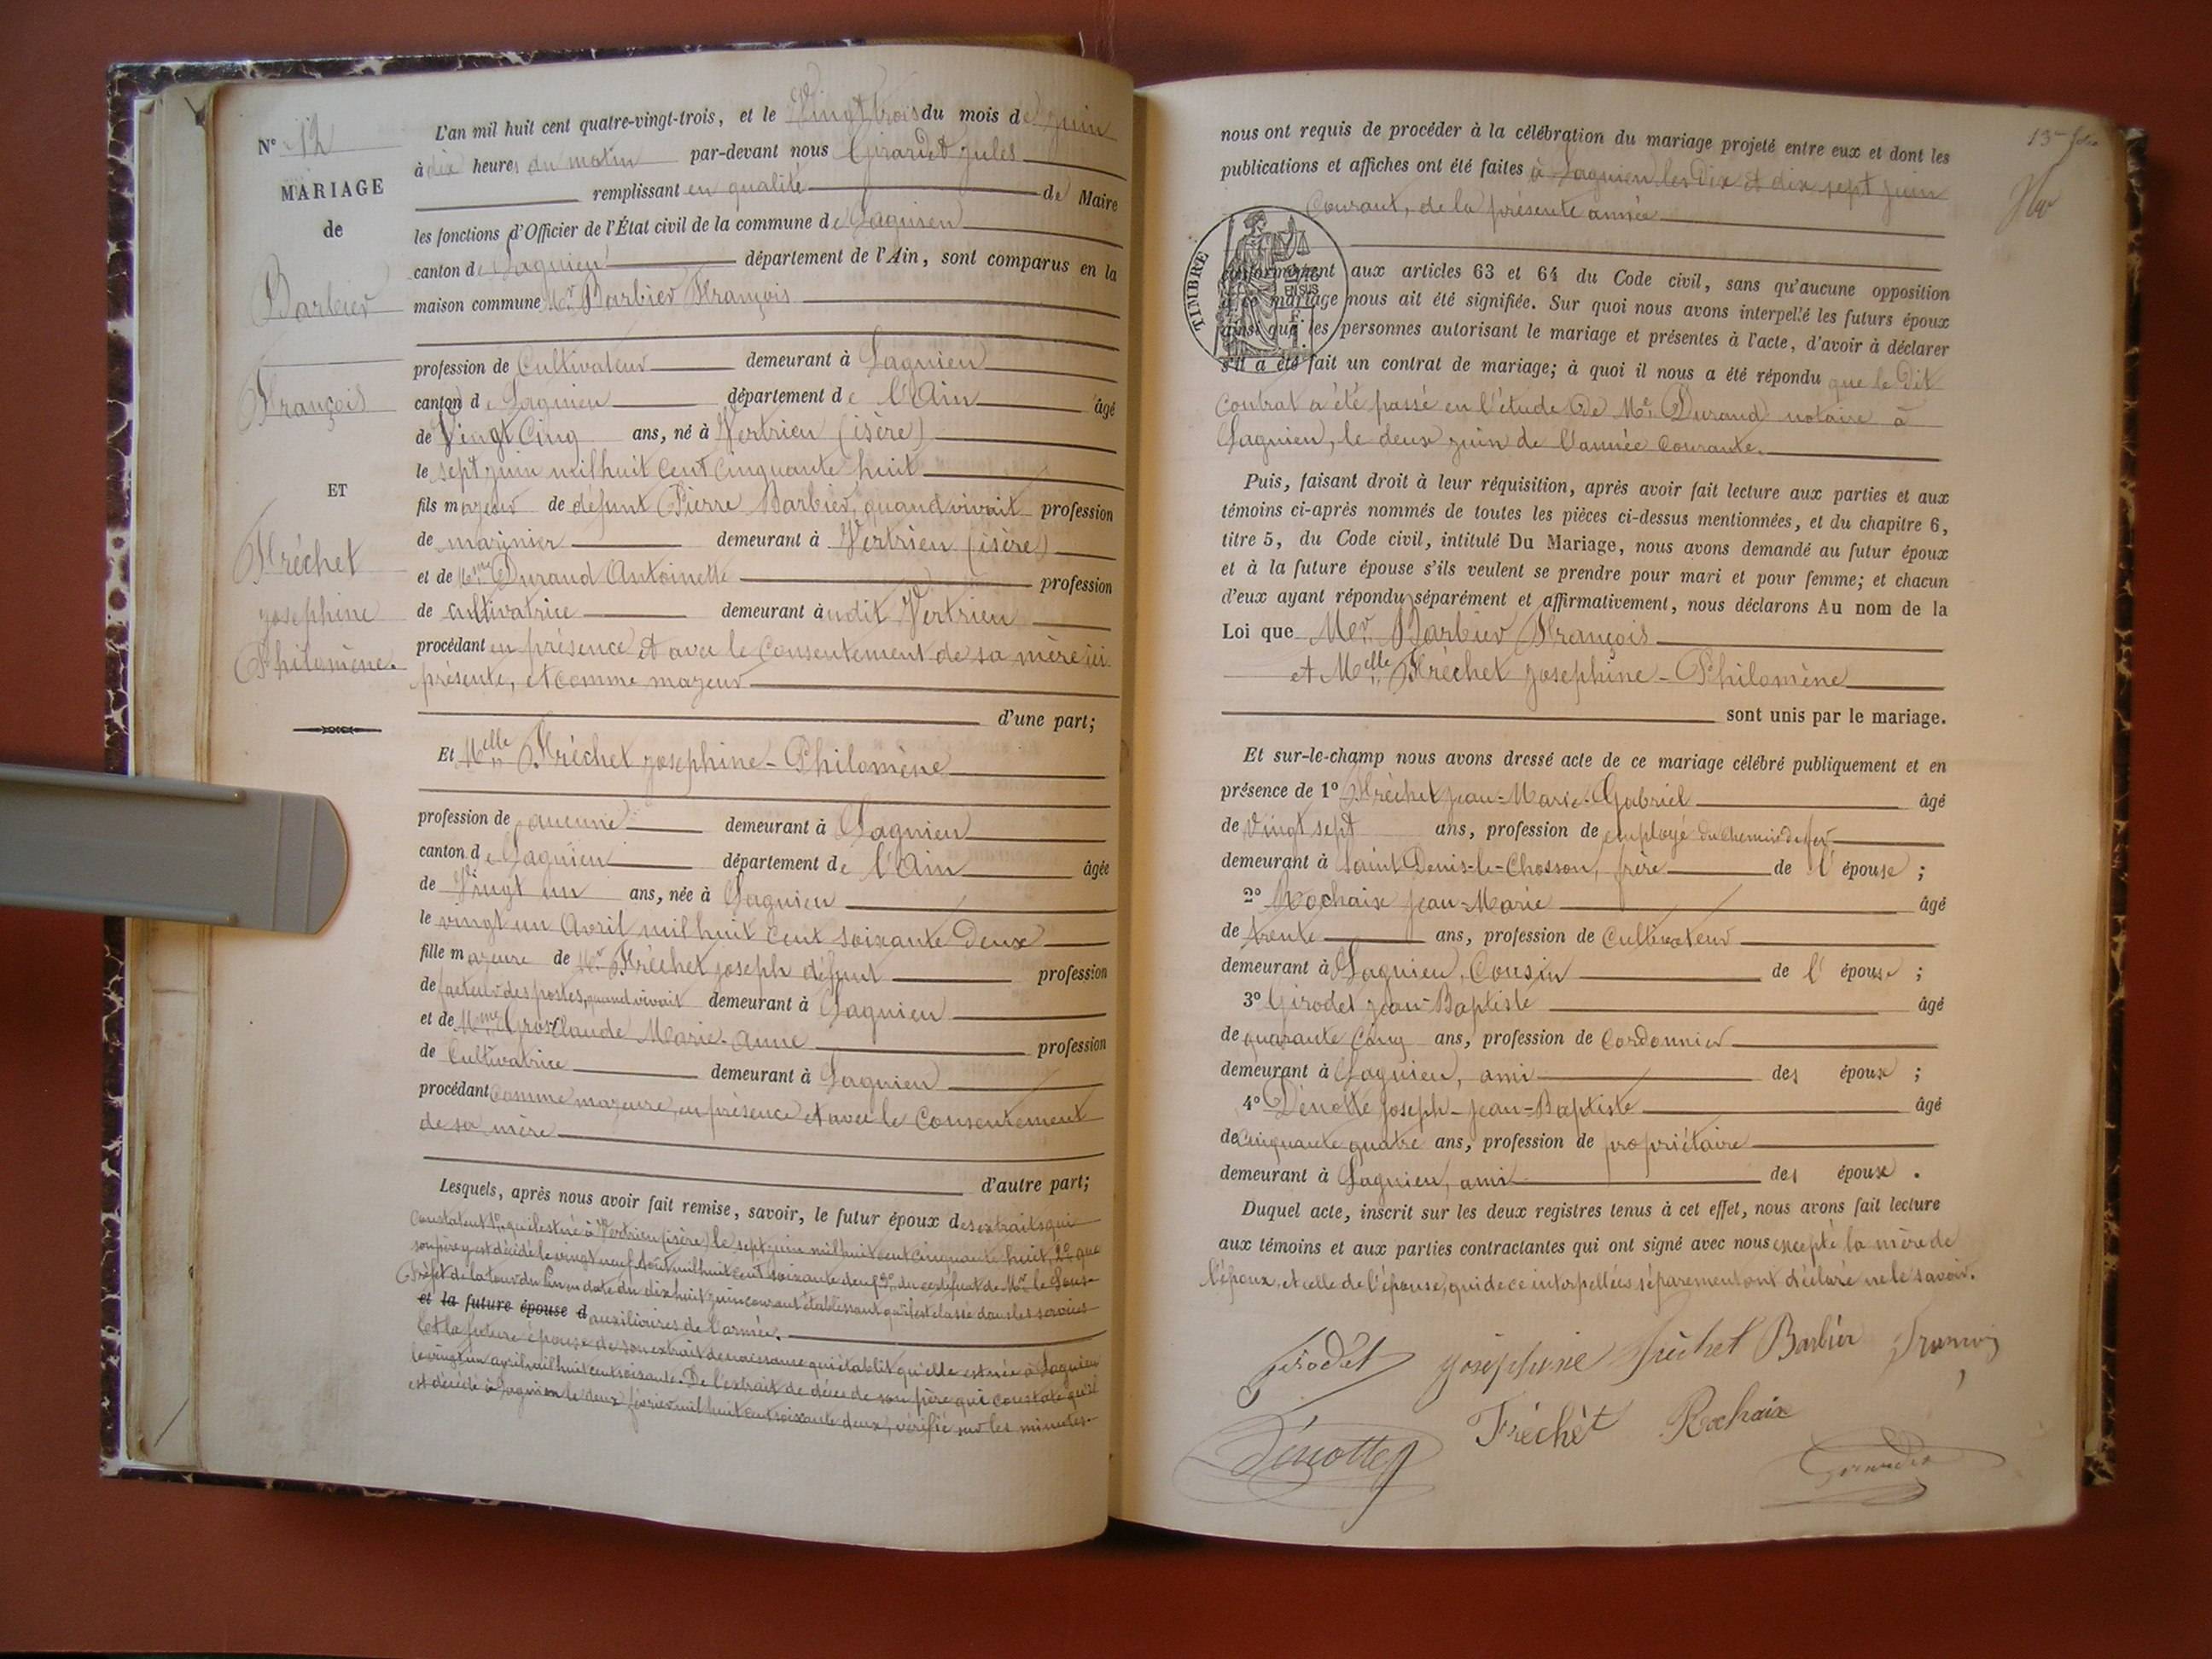 N° 12
MARIAGE
de
Barbier
François
ET
Fréchet
Josephine
Philomène.
L'an mil huit cent quatre-vingt-trois, et le Vingt trois du mois de juin
à dix heures du matin par-devant nous Girardet Jules
remplissant en qualité de Maire
les fonctions d'Officier de l'État civil de la commune de Lagnieu
canton de Lagnieu département de l'Ain, sont comparus en la
maison commune Mr Barbier François
profession de Cultivateur demeurant à Lagnieu
canton de Lagnieu département de l'Ain âgé
de Vingt Cinq ans, né à Vertrieu (isère)
le sept juin mil huit Cent Cinquante huit
fils majeur de défunt Pierre Barbier, quand vivait profession
de marinier demeurant à Vertrieu (isère)
et de Mme Durand Antoinette profession
de cultivatrice demeurant audit Vertrieu
procédant en présence et avec le Consentement de sa mère ici
présente, et comme majeur
d'une part;
Et Melle Fréchet Josephine-Philomène
profession de aucune demeurant à Lagnieu
canton de Lagnieu département de l'Ain âgée
de Vingt un ans, née à Lagnieu
le vingt un Avril mil huit Cent soixante Deux
fille majeure de Mr Fréchet Joseph défunt profession
de facteur des postes, quand vivait demeurant à Lagnieu
et de Mme Gros Claude Marie-Anne profession
de Cultivatrice demeurant à Lagnieu
procédant Comme majeure, en présence et avec le Consentement
de sa mère
d'autre part;
Lesquels, après nous avoir fait remise, savoir, le futur époux des extraits qui
Constatent 1°, qu'il est né à Vertrieu (isère) le sept juin mil huit cent cinquante huit, 2° que
son père y est décédé le vingt neuf Août mil huit cent soixante 3° du certificat de Mr le Sous-
Préfet de la tour du Pin en date du dix huit juin courant établissant qu'il est classé dans les services
et la future épouse d auxiliaires de l'armée.
Et la future épouse de son extrait de naissance qui établit qu'elle est née à Lagnieu
le vingt un avril mil huit cent soixante. De l'extrait de décès de son père qui constate qu'il
est décédé à Lagnieu le deux février mil huit cent soixante deux, vérifié sur les minutes
13e
nous ont requis de procéder à la célébration du mariage projeté entre eux et dont les
publications et affiches ont été faites à Lagnieu les Dix et dix sept juin
Courant, de la présente année
TIMBRE
conformément aux articles 63 et 64 du Code civil, sans qu'aucune opposition
à ce mariage nous ait été signifiée. Sur quoi nous avons interpellé les futurs époux
ainsi que les personnes autorisant le mariage et présentes à l'acte, d'avoir à déclarer
s'il a été fait un contrat de mariage; à quoi il nous a été répondu que le Dit
Contrat a été passé en l'étude de Me Durand notaire à
Lagnieu, le deux juin de l'année Courante.
Puis, faisant droit à leur réquisition, après avoir fait lecture aux parties et aux
témoins ci-après nommés de toutes les pièces ci-dessus mentionnées, et du chapitre 6,
titre 5, du Code civil, intitulé Du Mariage, nous avons demandé au futur époux
et à la future épouse s'ils veulent se prendre pour mari et pour femme; et chacun
d'eux ayant répondu séparément et affirmativement, nous déclarons Au nom de la
Loi que Mr Barbier François
et Melle Fréchet Josephine-Philomène
sont unis par le mariage.
Et sur-le-champ nous avons dressé acte de ce mariage célébré publiquement et en
présence de 1° Fréchet Jean-Marie-Gabriel âgé
de Vingt sept ans, profession de employé du chemin de fer
demeurant à Saint Denis-le-Chosson, frère de l'épouse ;
2° Rochaix Jean-Marie âgé
de trente ans, profession de Cultivateur
demeurant à Lagnieu, Cousin de l'épouse ;
3° Girodet Jean-Baptiste âgé
de quarante Cinq ans, profession de Cordonnier
demeurant à Lagnieu, ami des époux ;
4° Dénotte Joseph-Jean-Baptiste âgé
de Cinquante quatre ans, profession de propriétaire
demeurant à Lagnieu, ami des époux .
Duquel acte, inscrit sur les deux registres tenus à cet effet, nous avons fait lecture
aux témoins et aux parties contractantes qui ont signé avec nous excepté la mère de
l'époux, et celle de l'épouse, qui de ce interpellées séparement ont déclaré ne le savoir.
Girodet Josephine Fréchet Barbier François
Dénotte Fréchet Rochaix Girardet